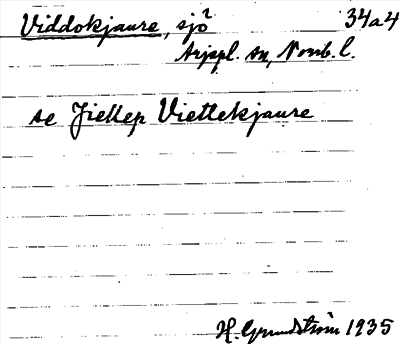 Viddokjaure, sjö? 34a4
Arjepl. sn, Norrb. l.
se Jiekep Viettekjaure
H. Grundström 1935